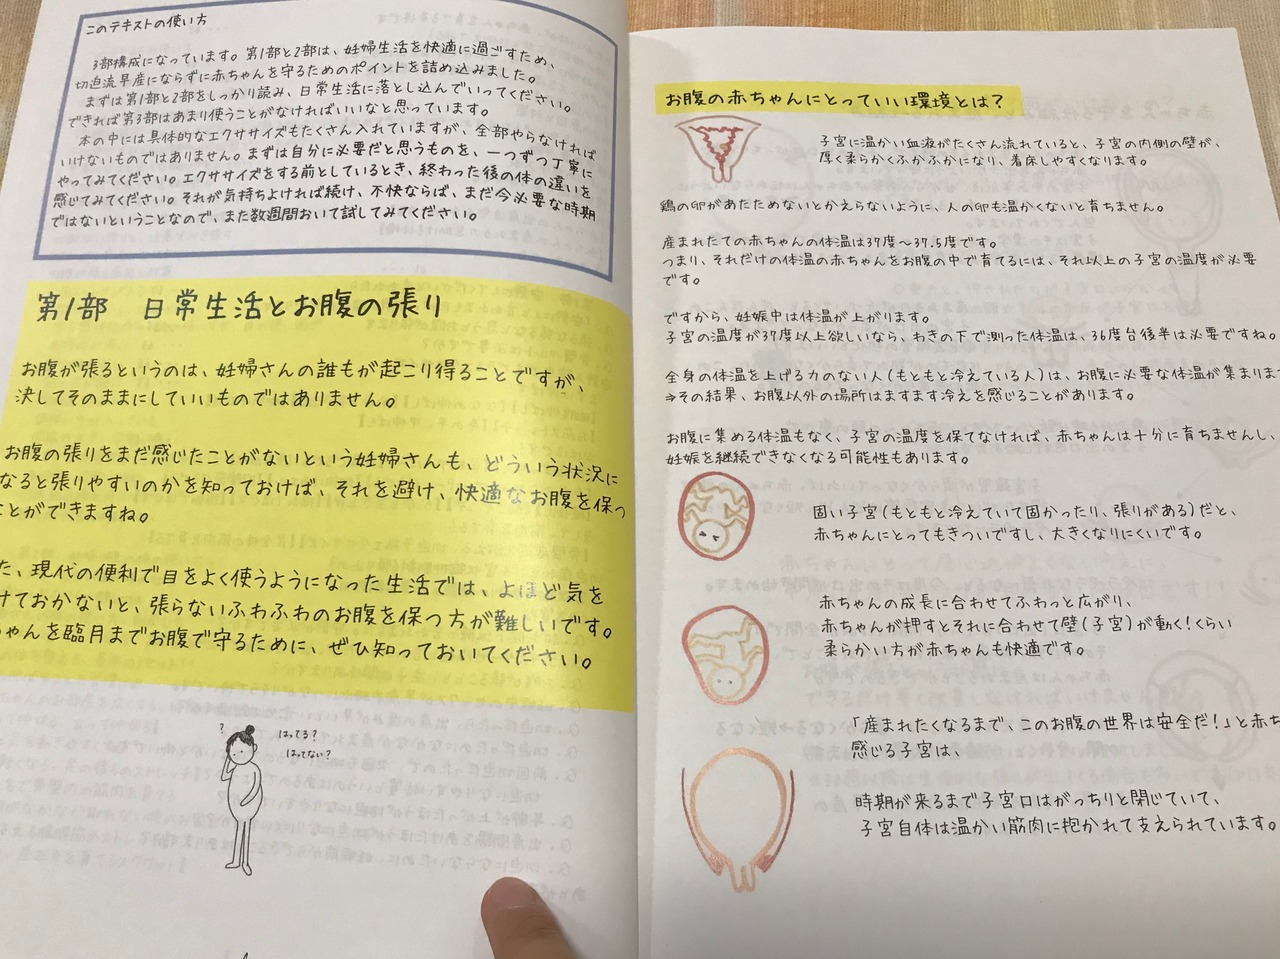 このテキストの使い方
3部構成になっています。第1部と2部は、妊婦生活を快適に過ごすため、
切迫流早産にならずに赤ちゃんを守るためのポイントを詰め込みました。
まずは第1部と2部をしっかり読み、日常生活に落とし込んでいってください。
できれば第3部はあまり使うことがなければいいなと思っています。
本の中には具体的なエクササイズもたくさん入れていますが、全部やらなければ
いけないものではありません。まずは自分に必要だと思うものを、一つずつ丁寧に
やってみてください。エクササイズをする前としているとき、終わった後の体の違いを
感じてみてください。それが気持ちよければ続け、不快ならば、まだ今必要な時期
ではないということなので、また数週間おいて試してみてください。
第1部 日常生活とお腹の張り
お腹が張るというのは、妊婦さんの誰もが起こり得ることですが、
決してそのままにしていいものではありません。
お腹の張りをまだ感じたことがないという妊婦さんも、どういう状況に
なると張りやすいのかを知っておけば、それを避け、快適なお腹を保つ
ことができますね。
た、現代の便利で目をよく使うようになった生活では、よほど気を
けておかないと、張らないふわふわのお腹を保つ方が難しいです。
ちゃんを臨月までお腹で守るために、ぜひ知っておいてください。
?
はってる?
はってない?
お腹の赤ちゃんにとっていい環境とは?
子宮に温かい血液がたくさん流れていると、子宮の内側の壁が、
厚く柔らかくふかふかになり、着床しやすくなります。
鶏の卵があたためないとかえらないように、人の卵も温かくないと育ちません。
産まれたての赤ちゃんの体温は37度~37.5度です。
つまり、それだけの体温の赤ちゃんをお腹の中で育てるには、それ以上の子宮の温度が必要
です。
ですから、妊娠中は体温が上がります。
子宮の温度が37度以上欲しいなら、わきの下で測った体温は、36度台後半は必要ですね。
全身の体温を上げる力のない人(もともと冷えている人)は、お腹に必要な体温が集まります
⇒その結果、お腹以外の場所はますます冷えを感じることがあります。
お腹に集める体温もなく、子宮の温度を保てなければ、赤ちゃんは十分に育ちませんし、
妊娠を継続できなくなる可能性もあります。
固い子宮(もともと冷えていて固かったり、張りがある)だと、
赤ちゃんにとってもきついですし、大きくなりにくいです。
赤ちゃんの成長に合わせてふわっと広がり、
赤ちゃんが押すとそれに合わせて壁(子宮)が動く!くらい
柔らかい方が赤ちゃんも快適です。
「産まれたくなるまで、このお腹の世界は安全だ!」と赤ち
感じる子宮は、
時期が来るまで子宮口はがっちりと閉じていて、
子宮自体は温かい筋肉に抱かれて支えられています。